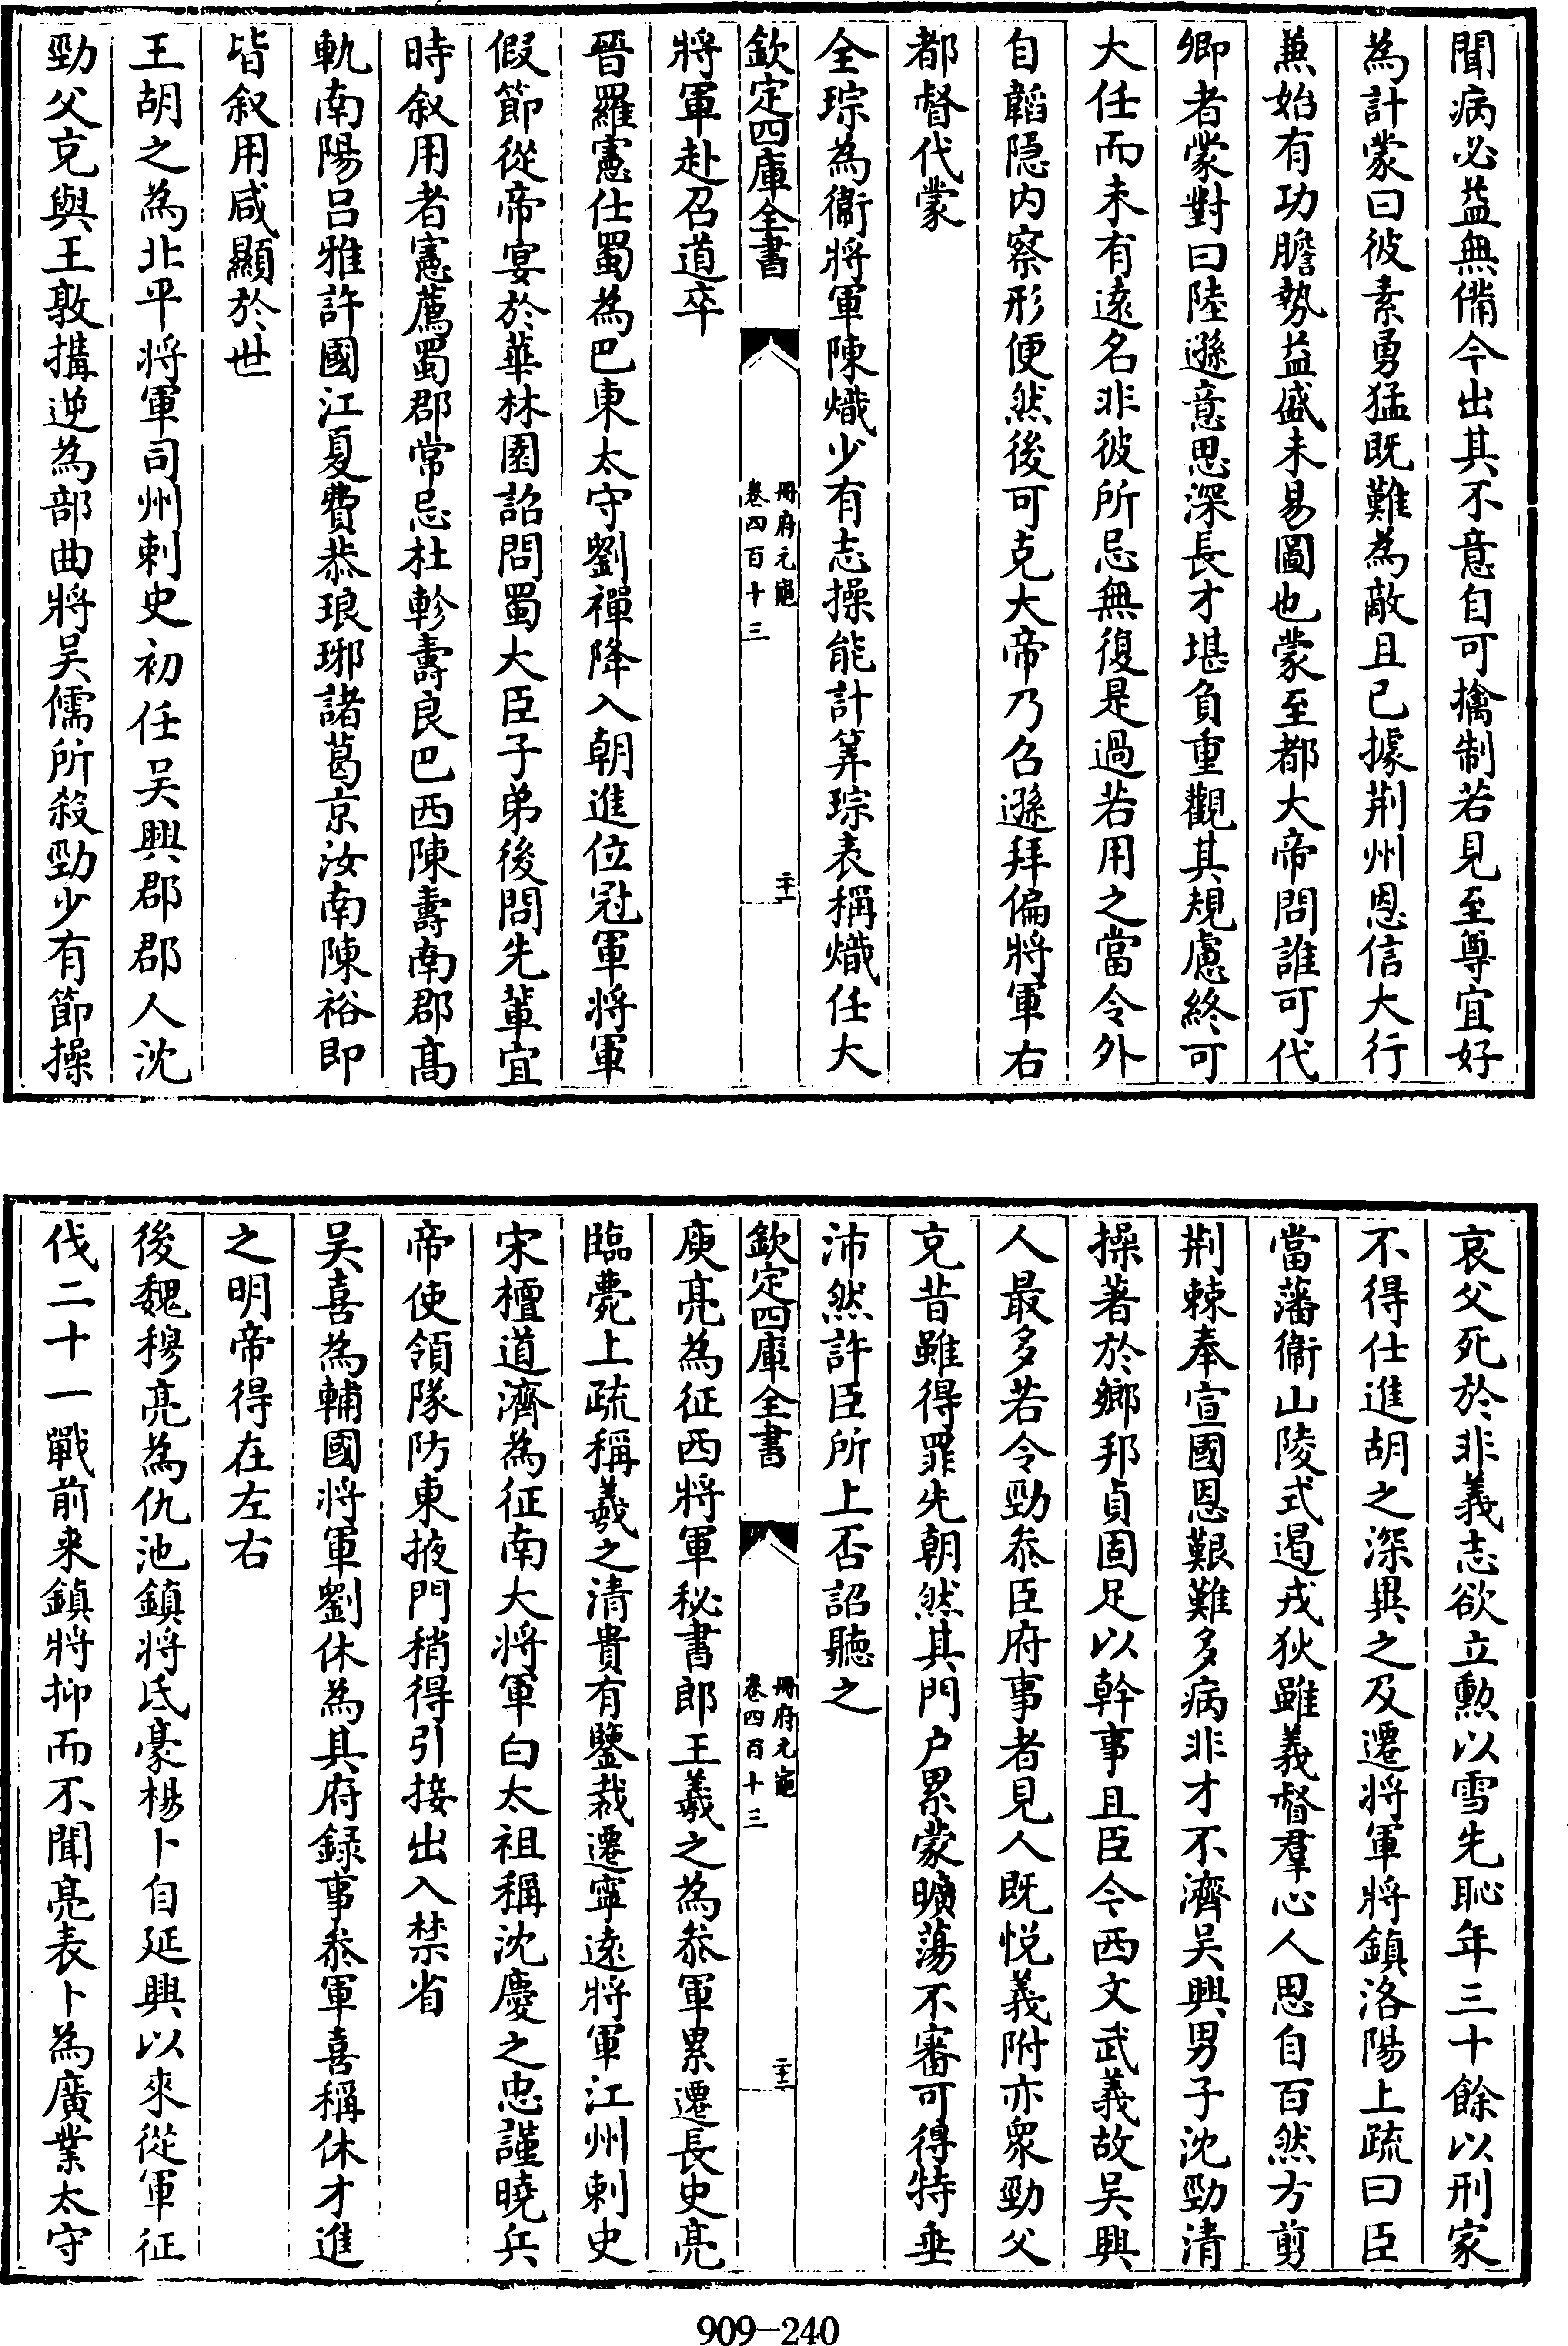 聞病必益無備今出其不意自可擒制若見至尊宜好
為計蒙曰彼素勇猛既難為敵且已據荆州恩信大行
兼始有功膽勢益盛未易圖也蒙至都大帝問誰可代
卿者蒙對曰陸遜意思深長才堪負重觀其規慮終可
大任而未有逺名非彼所忌無復是過若用之當令外
自韜隠内察形便然後可克大帝乃召遜拜偏將軍右
都督代蒙
全琮為衞將軍陳熾少有志操能計筭琮表稱熾任大
欽定四庫全書
冊府元龜
卷四百十三
二十一
將軍赴召道卒
晉羅憲仕蜀為巴東太守劉禪降入朝進位冠軍將軍
假節從帝宴於華林園詔問蜀大臣子弟後問先軰宜
時叙用者憲薦蜀郡常忌杜軫壽良巴西陳壽南郡髙
軌南陽吕雅許國江夏費恭琅琊諸葛京汝南陳裕即
皆叙用咸顯於世
王胡之為北平將軍司州刺史初任吳興郡郡人沈
勁父克與王敦搆逆為部曲將吳儒所殺勁少有節操
哀父死於非義志欲立勲以雪先恥年三十餘以刑家
不得仕進胡之深異之及遷將軍將鎮洛陽上疏曰臣
當藩衞山陵式遏戎狄雖義督羣心人思自百然方剪
荆棘奉宣國恩艱難多病非才不濟吳興男子沈勁清
操著於鄉邦貞固足以幹事且臣今西文武義故吳興
人最多若令勁叅臣府事者見人既悦義附亦衆勁父
克昔雖得罪先朝然其門户累蒙曠蕩不審可得特垂
沛然許臣所上否詔聽之
欽定四庫全書
冊府元龜
卷四百十三
二十二
庾亮為征西將軍秘書郎王羲之為叅軍累遷長史亮
臨薨上疏稱羲之清貴有鑒裁遷寧逺將軍江州刺史
宋檀道濟為征南大將軍白太祖稱沈慶之忠謹曉兵
帝使領隊防東掖門稍得引接出入禁省
吳喜為輔國將軍劉休為其府録事叅軍喜稱休才進
之明帝得在左右
後魏穆亮為仇池鎮將氐豪楊卜自延興以來從軍征
伐二十一戰前来鎮將抑而不聞亮表卜為廣業太守
909-240